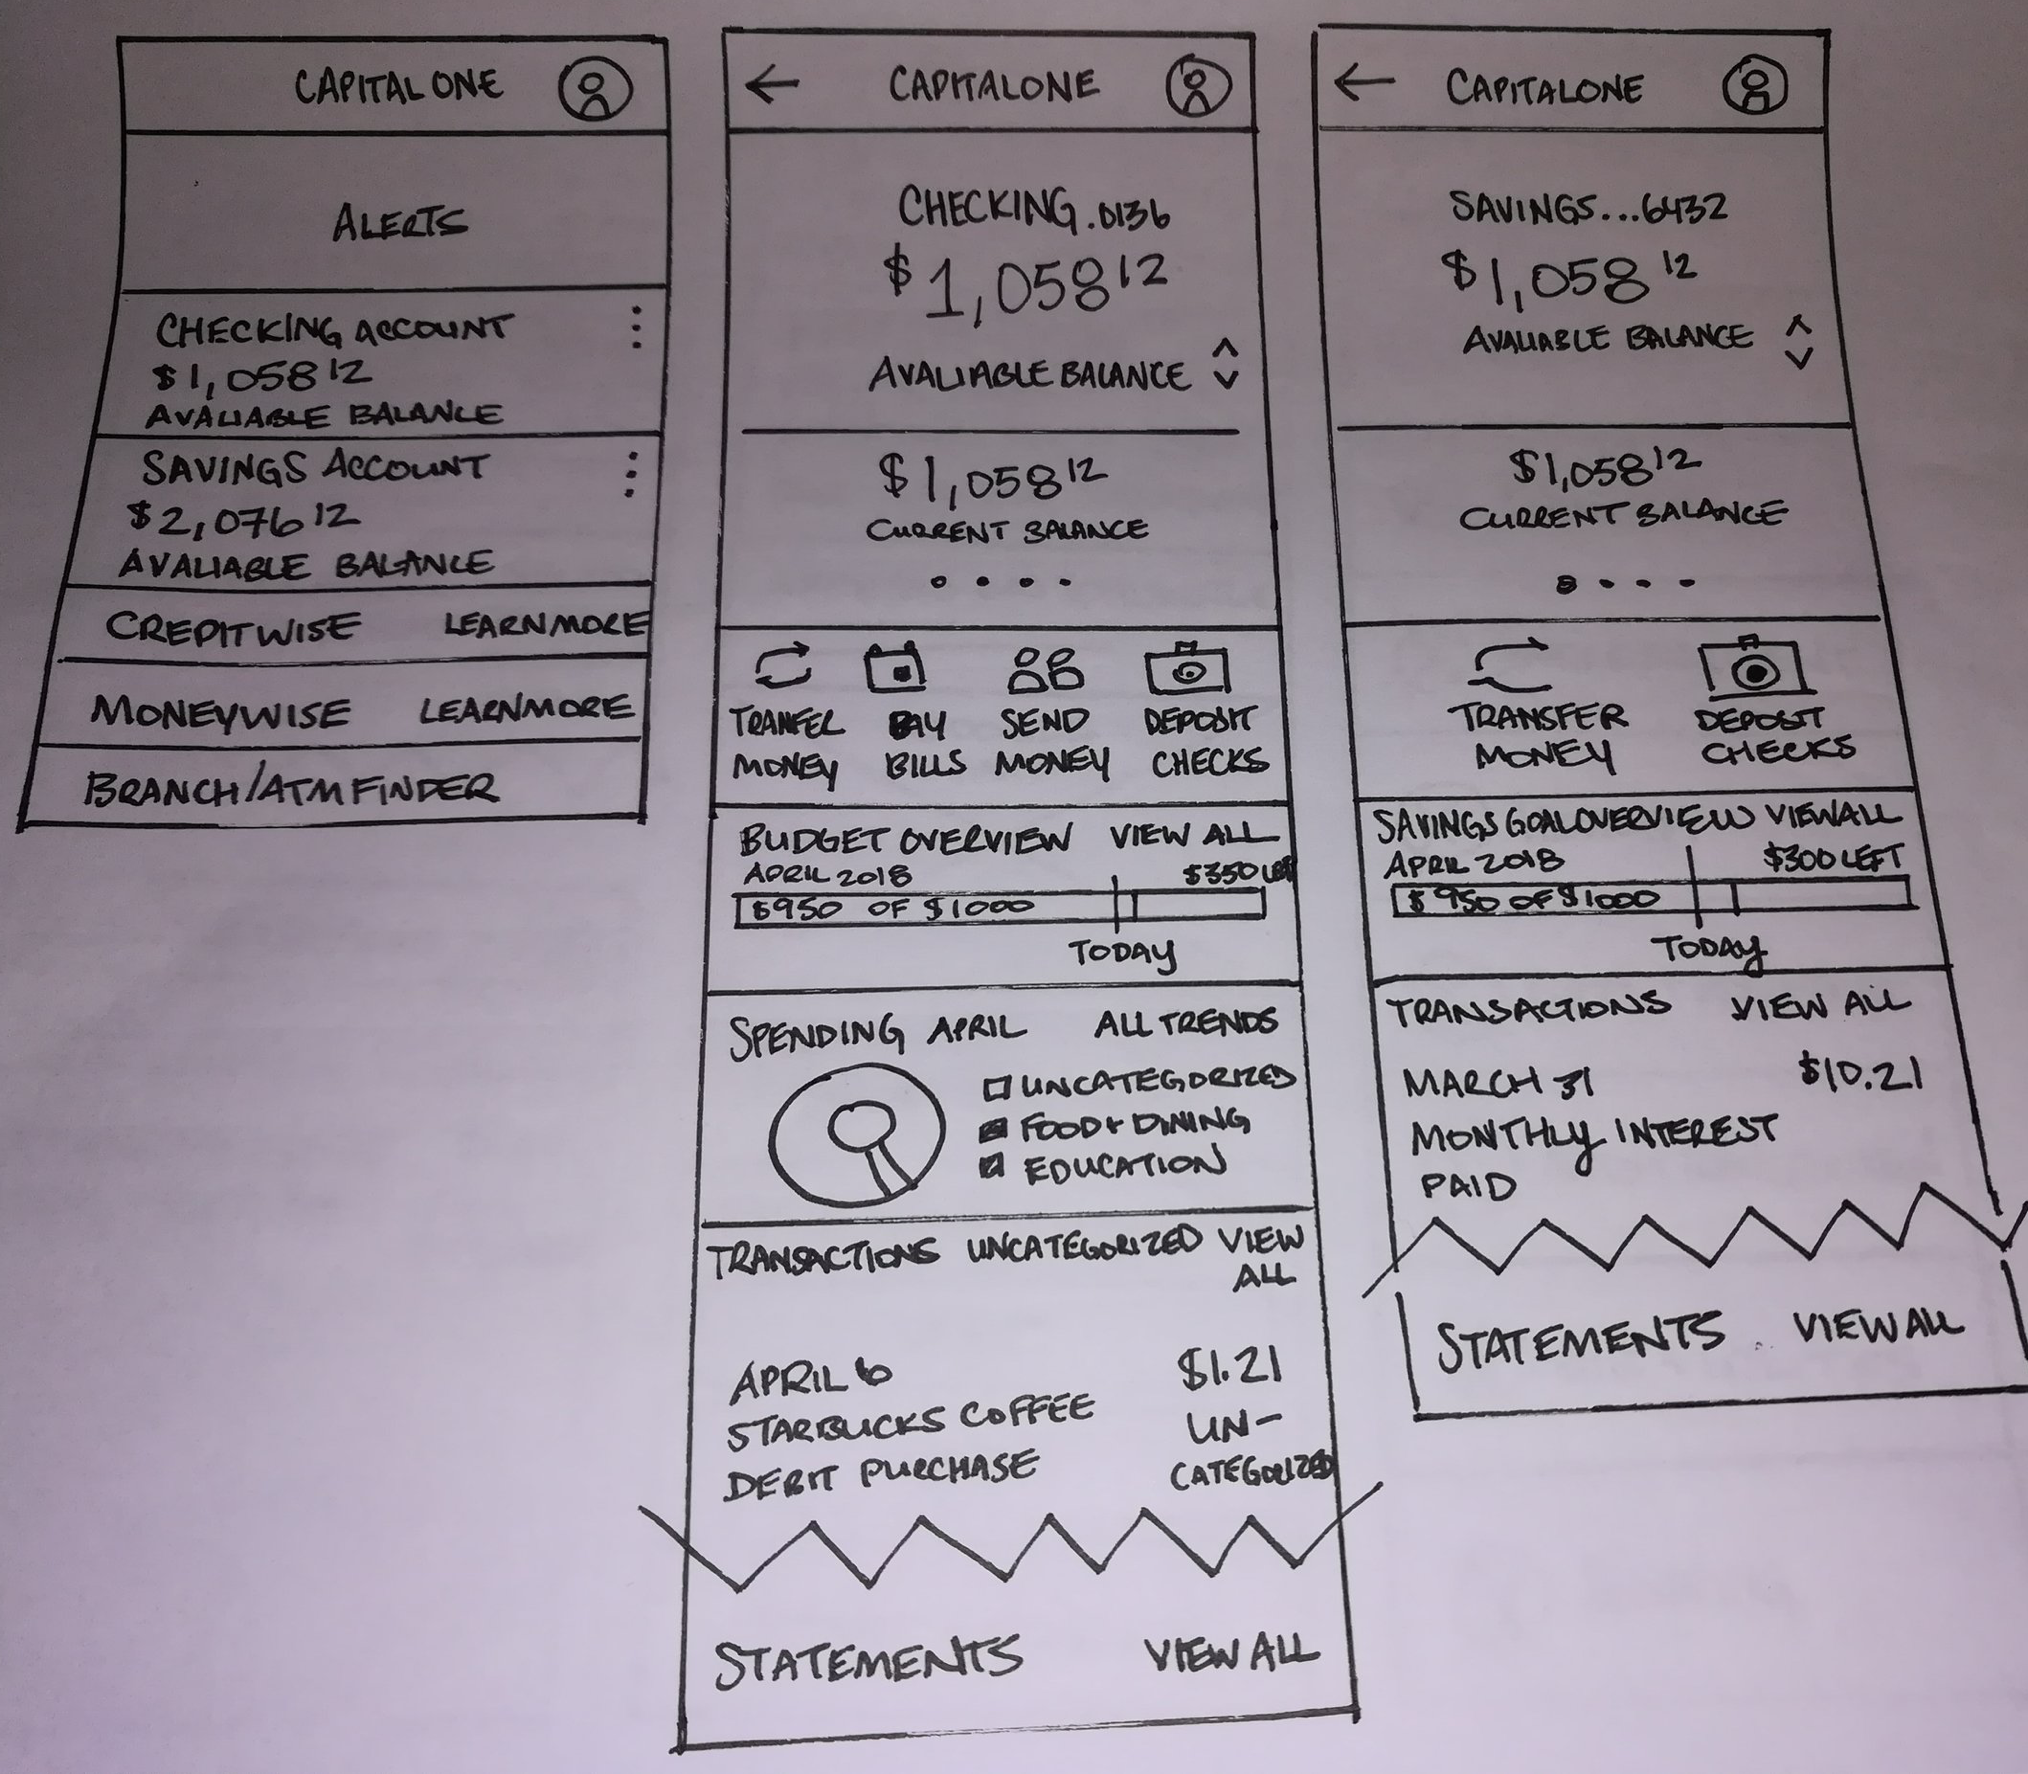 CAPITAL ONE
ALERTS
CHECKING ACCOUNT
$1,058 12
AVALIABLE BALANCE
SAVINGS ACCOUNT
$2,076 12
AVALIABLE BALANCE
CREDITWISE LEARN MORE
MONEYWISE LEARN MORE
BRANCH/ATM FINDER
CAPITALONE
CHECKING .0136
$1,058 12
AVALIABLE BALANCE
$1,058 12
CURRENT BALANCE
TRANFER PAY SEND DEPOSIT
MONEY BILLS MONEY CHECKS
BUDGET OVERVIEW VIEW ALL
APRIL 2018 $350 LEFT
$950 OF $1000
TODAY
SPENDING APRIL ALL TRENDS
UNCATEGORIZED
FOOD + DINING
EDUCATION
TRANSACTIONS UNCATEGORIZED VIEW
ALL
APRIL 6 $1.21
STARBUCKS COFFEE UN-
DEBIT PURCHASE CATEGORIZED
STATEMENTS VIEW ALL
CAPITALONE
SAVINGS...6432
$1,058 12
AVALIABLE BALANCE
$1,058 12
CURRENT BALANCE
TRANSFER DEPOSIT
MONEY CHECKS
SAVINGS GOAL OVERVIEW VIEW ALL
APRIL 2018 $300 LEFT
$950 OF $1000
TODAY
TRANSACTIONS VIEW ALL
MARCH 31 $10.21
MONTHLY INTEREST
PAID
STATEMENTS VIEW ALL